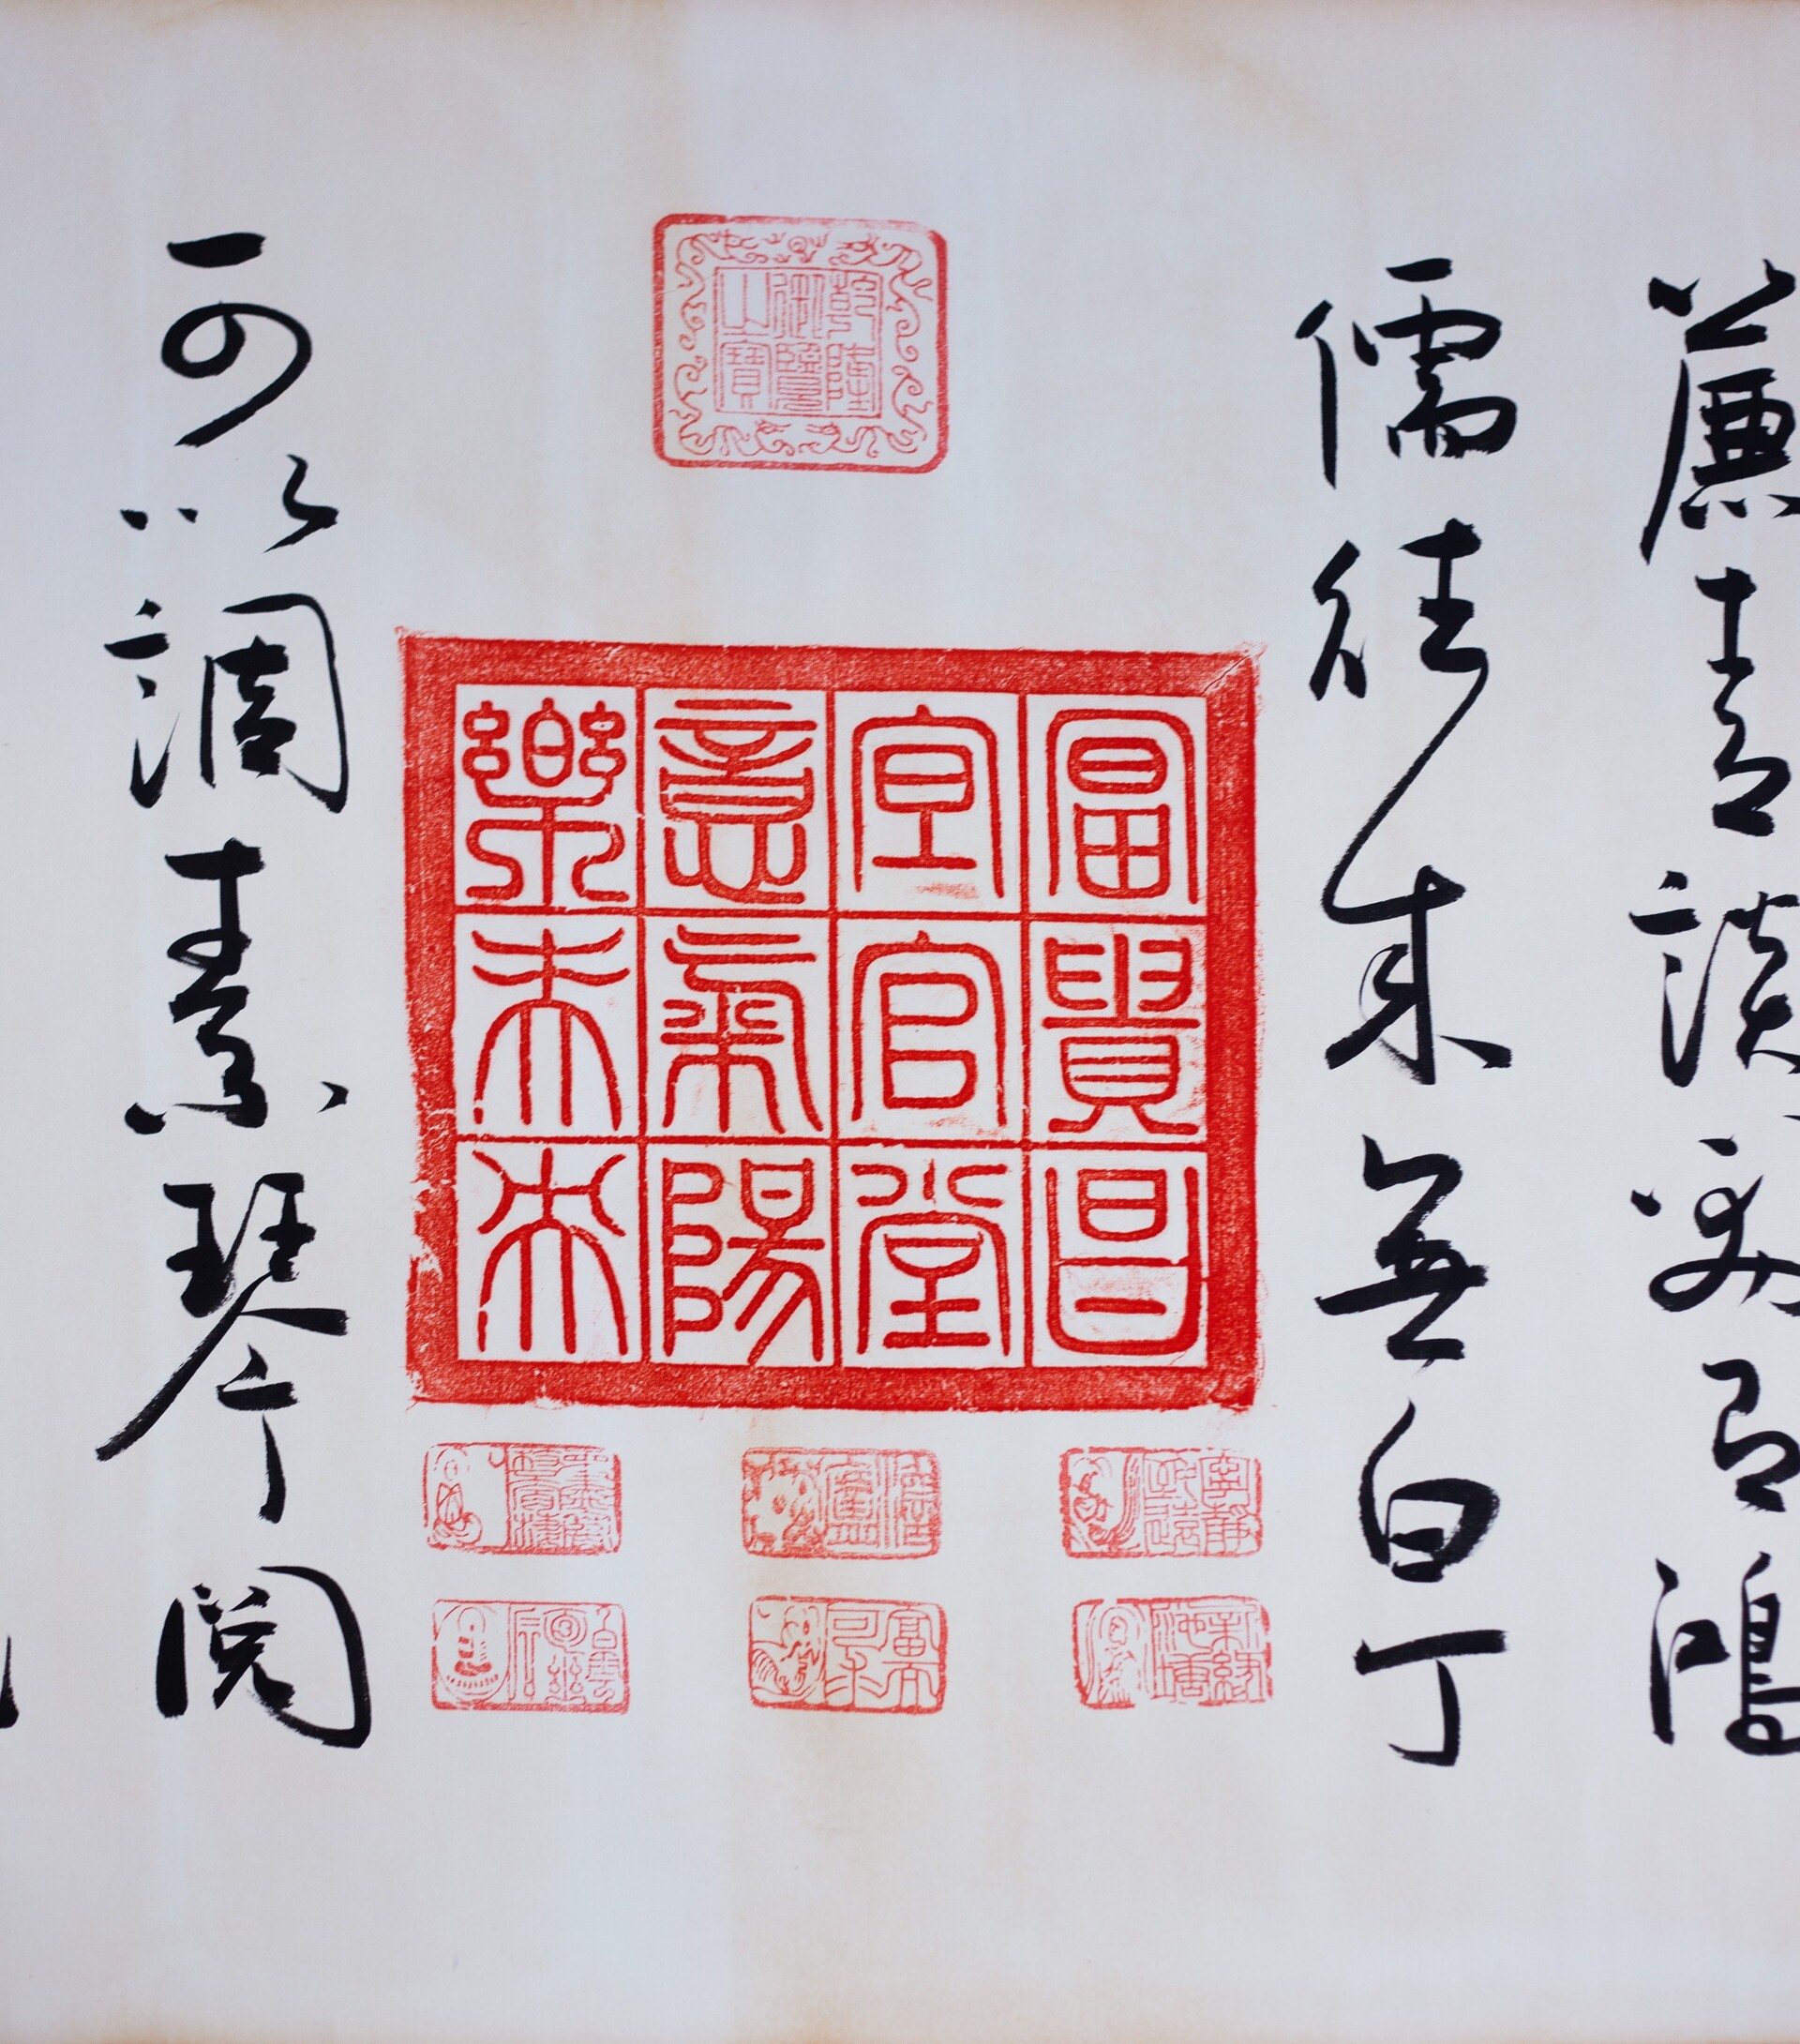 簾青談笑有鴻
儒往來無白丁
乾隆
御鑒
之寶
富貴昌
宜官堂
意氣陽
樂未央
寧靜
致遠
可以調素琴閱